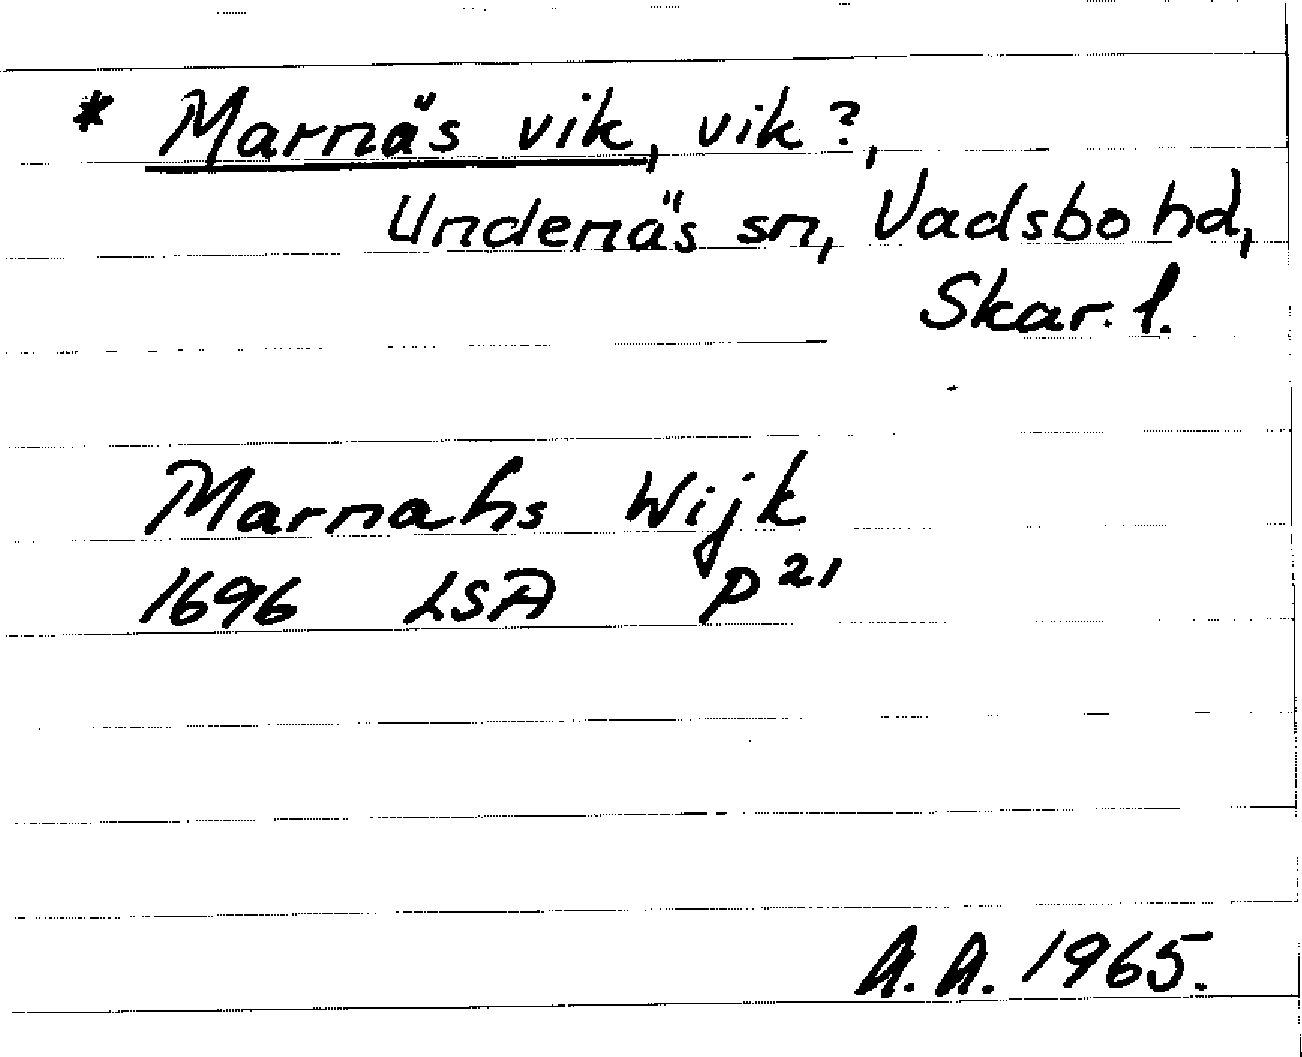 * Marnäs vik, vik?,
Undenäs sn, Vadsbo hd,
Skar. l.
Marnahs Wijk
1696 LSA P²¹
A.A. 1965.